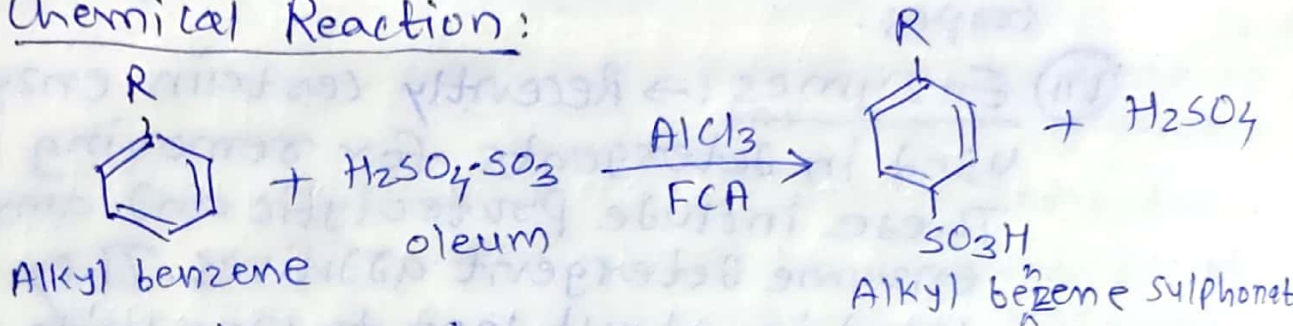 Chemical Reaction:
R
R
+ H2SO4·SO3 AlCl3 + H2SO4
FCA
oleum
SO3H
Alkyl benzene
Alkyl bezene sulphonat
n